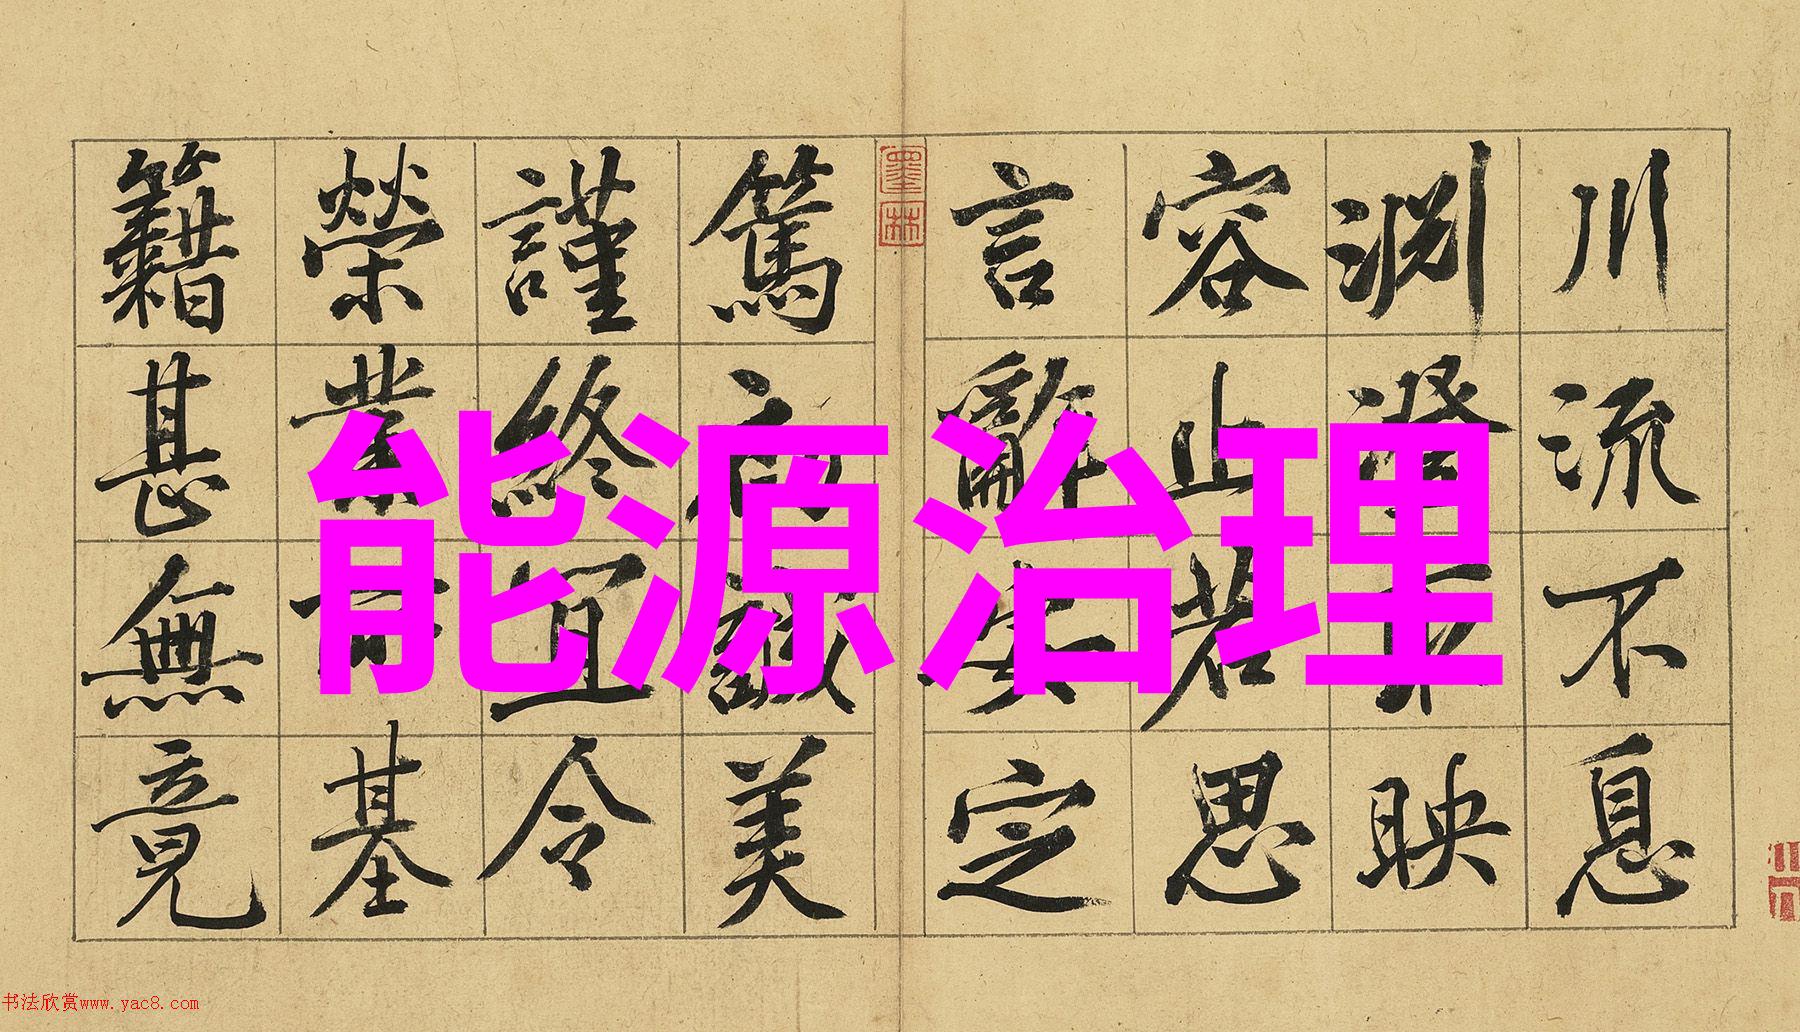 川流不息
淵澄映
容止若思
言辭安定
墨林
篤初誠美
謹終宜令
榮業所基
籍甚無竟
能源治理
书法欣赏www.yac8.com